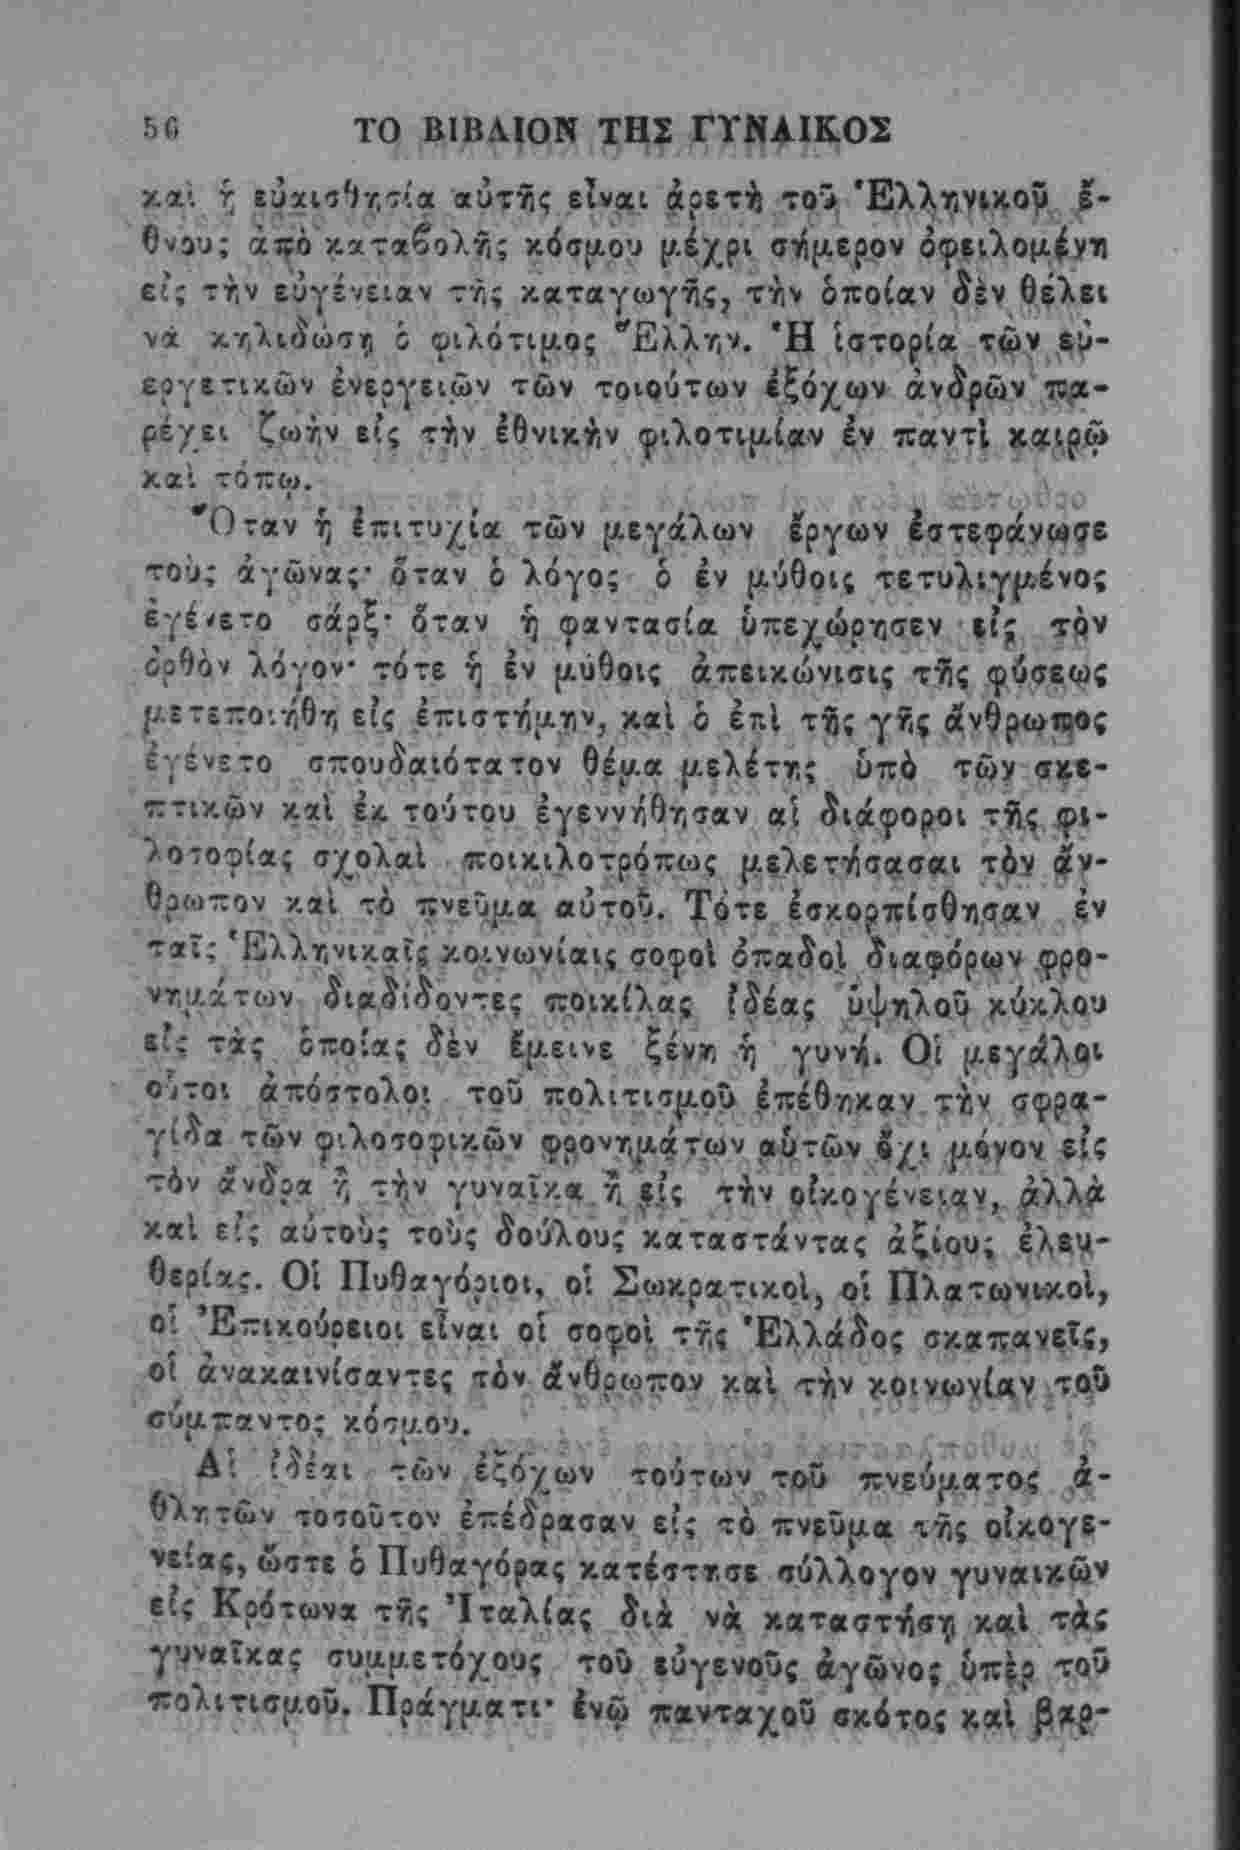 56 ΤΟ ΒΙΒΛΙΟΝ ΤΗΣ ΓΥΝΑΙΚΟΣ
καὶ ἡ εὐαισθησία αὐτῆς εἶναι ἀρετὴ τοῦ Ἑλληνικοῦ ἔ-
θνους ἀπὸ καταβολῆς κόσμου μέχρι σήμερον ὀφειλομένη
εἰς τὴν εὐγένειαν τῆς καταγωγῆς, τὴν ὁποίαν δὲν θέλει
νὰ κηλιδώσῃ ὁ φιλότιμος Ἕλλην. Ἡ ἱστορία τῶν εὐ-
εργετικῶν ἐνεργειῶν τῶν τοιούτων ἐξόχων ἀνδρῶν πα-
ρέχει ζωὴν εἰς τὴν ἐθνικὴν φιλοτιμίαν ἐν παντὶ καιρῷ
καὶ τόπῳ.
Ὅταν ἡ ἐπιτυχία τῶν μεγάλων ἔργων ἐστεφάνωσε
τοὺς ἀγῶνας· ὅταν ὁ λόγος ὁ ἐν μύθοις τετυλιγμένος
ἐγένετο σάρξ· ὅταν ἡ φαντασία ὑπεχώρησεν εἰς τὸν
ὀρθὸν λόγον· τότε ἡ ἐν μύθοις ἀπεικώνισις τῆς φύσεως
μετεποιήθη εἰς ἐπιστήμην, καὶ ὁ ἐπὶ τῆς γῆς ἄνθρωπος
ἐγένετο σπουδαιότατον θέμα μελέτης ὑπὸ τῶν σκε-
πτικῶν καὶ ἐκ τούτου ἐγεννήθησαν αἱ διάφοροι τῆς φι-
λοσοφίας σχολαὶ ποικιλοτρόπως μελετήσασαι τὸν ἄν-
θρωπον καὶ τὸ πνεῦμα αὐτοῦ. Τότε ἐσκορπίσθησαν ἐν
ταῖς Ἑλληνικαῖς κοινωνίαις σοφοὶ ὀπαδοὶ διαφόρων φρο-
νημάτων διαδίδοντες ποικίλας ἰδέας ὑψηλοῦ κύκλου
εἰς τὰς ὁποίας δὲν ἔμεινε ξένη ἡ γυνή. Οἱ μεγάλοι
οὗτοι ἀπόστολοι τοῦ πολιτισμοῦ ἐπέθηκαν τὴν σφρα-
γίδα τῶν φιλοσοφικῶν φρονημάτων αὑτῶν ὄχι μόνον εἰς
τὸν ἄνδρα ἢ τὴν γυναῖκα ἢ εἰς τὴν οἰκογένειαν, ἀλλὰ
καὶ εἰς αὐτοὺς τοὺς δούλους καταστάντας ἀξίους ἐλευ-
θερίας. Οἱ Πυθαγόριοι, οἱ Σωκρατικοὶ, οἱ Πλατωνικοὶ,
οἱ Ἐπικούρειοι εἶναι οἱ σοφοὶ τῆς Ἑλλάδος σκαπανεῖς,
οἱ ἀνακαινίσαντες τὸν ἄνθρωπον καὶ τὴν κοινωνίαν τοῦ
σύμπαντος κόσμου.
Αἱ ἰδέαι τῶν ἐξόχων τούτων τοῦ πνεύματος ἀ-
θλητῶν τοσοῦτον ἐπέδρασαν εἰς τὸ πνεῦμα τῆς οἰκογε-
νείας, ὥστε ὁ Πυθαγόρας κατέστησε σύλλογον γυναικῶν
εἰς Κρότωνα τῆς Ἰταλίας διὰ νὰ καταστήσῃ καὶ τὰς
γυναῖκας συμμετόχους τοῦ εὐγενοῦς ἀγῶνος ὑπὲρ τοῦ
πολιτισμοῦ. Πράγματι· ἐνῷ πανταχοῦ σκότος καὶ βαρ-